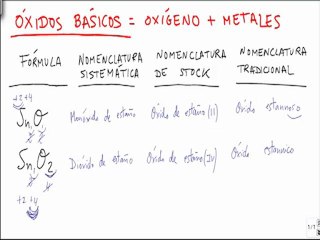 ÓXIDOS BÁSICOS = OXÍGENO + METALES
FÓRMULA NOMENCLATURA SISTEMÁTICA NOMENCLATURA DE STOCK NOMENCLATURA TRADICIONAL
+2 +4
SnO Monóxido de estaño Óxido de estaño (II) Óxido estannoso
SnO2 Dióxido de estaño Óxido de estaño (IV) Óxido estannico
+2 +4